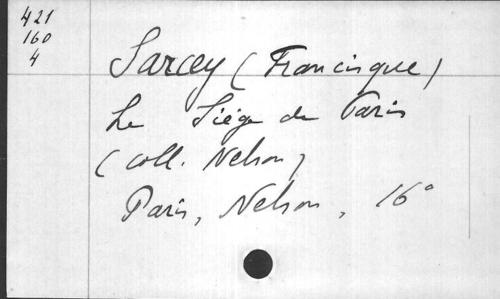 421
160
4
Sarcey (Francisque)
Le Siège de Paris
(coll. Nelson)
Paris, Nelson, 16°